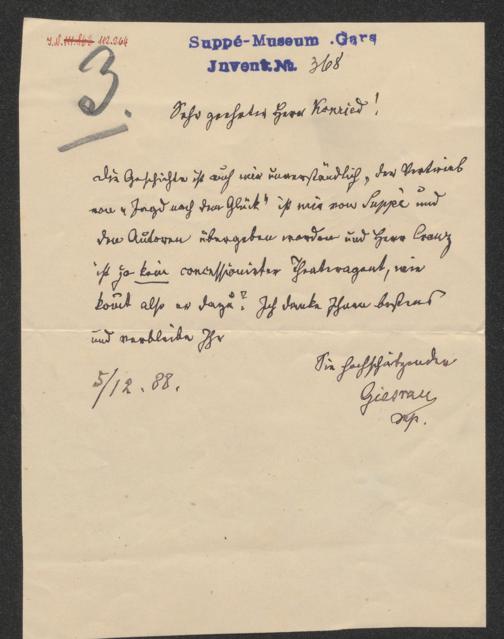 I.N. 111.862 112.264
3.
Suppé-Museum Gars
Invent. No. 368
Sehr geehrter Herr Konried!
Die Geschichte ist auch mir unverständlich, der Vertrieb
von "Jagd nach dem Glück" ist mir von Suppé und
den Autoren übergeben worden und Herr Cranz
ist ja kein concessionierter Theateragent, wie
kom̄t also er dazu? Ich danke Ihnen bestens
und verbleibe Ihr
Sie hochschätzender
5/12. 88.
mp.